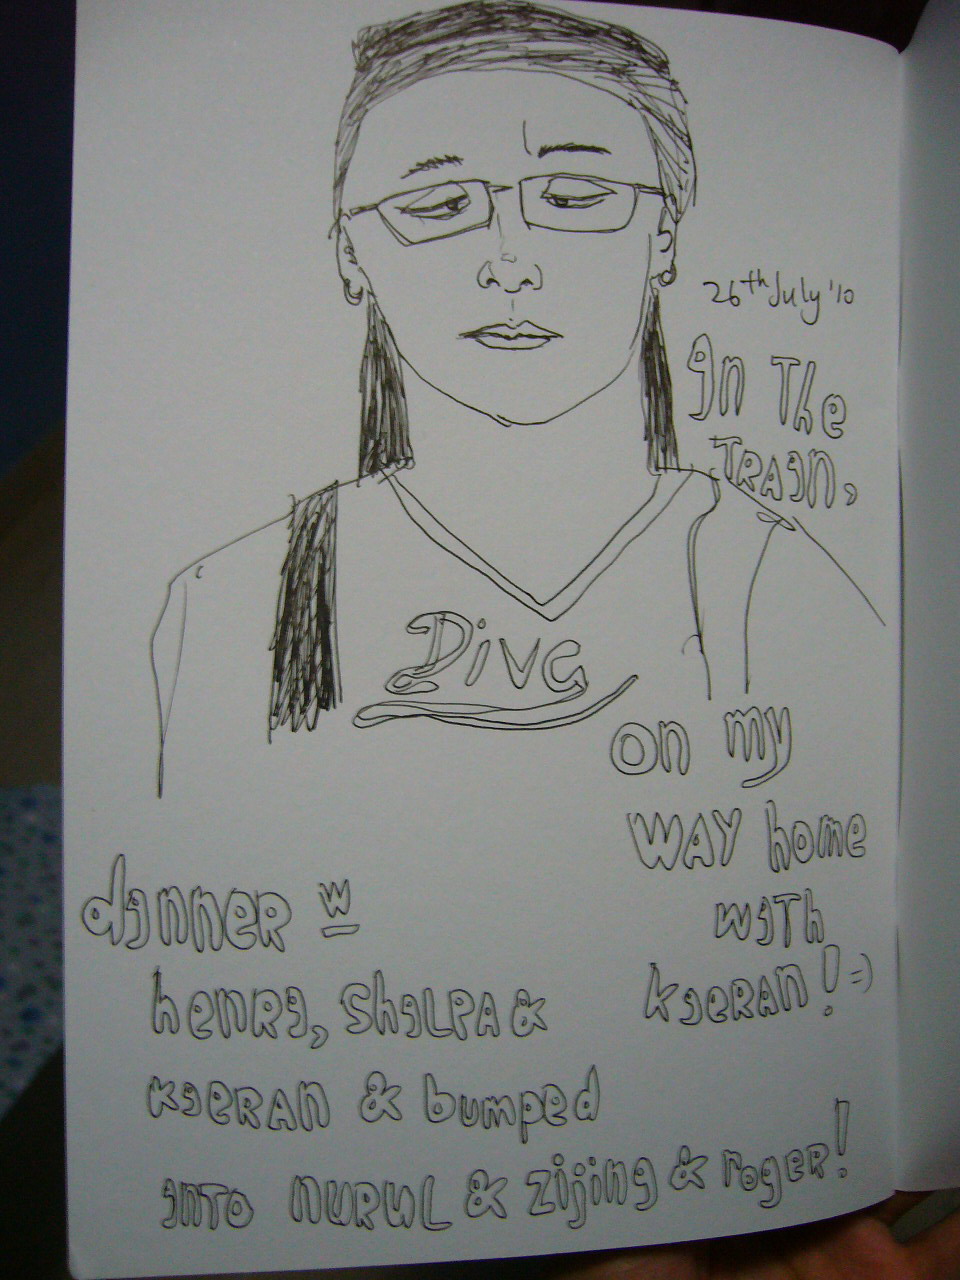 26th July '10
In The
TRAiN,
Diva
on my
WAY home
wiTh
kieRAN! =)
dinneR w
henRi, ShiLPA &
kieRAN & bumped
inTo NURUL & zijing & RogeR!